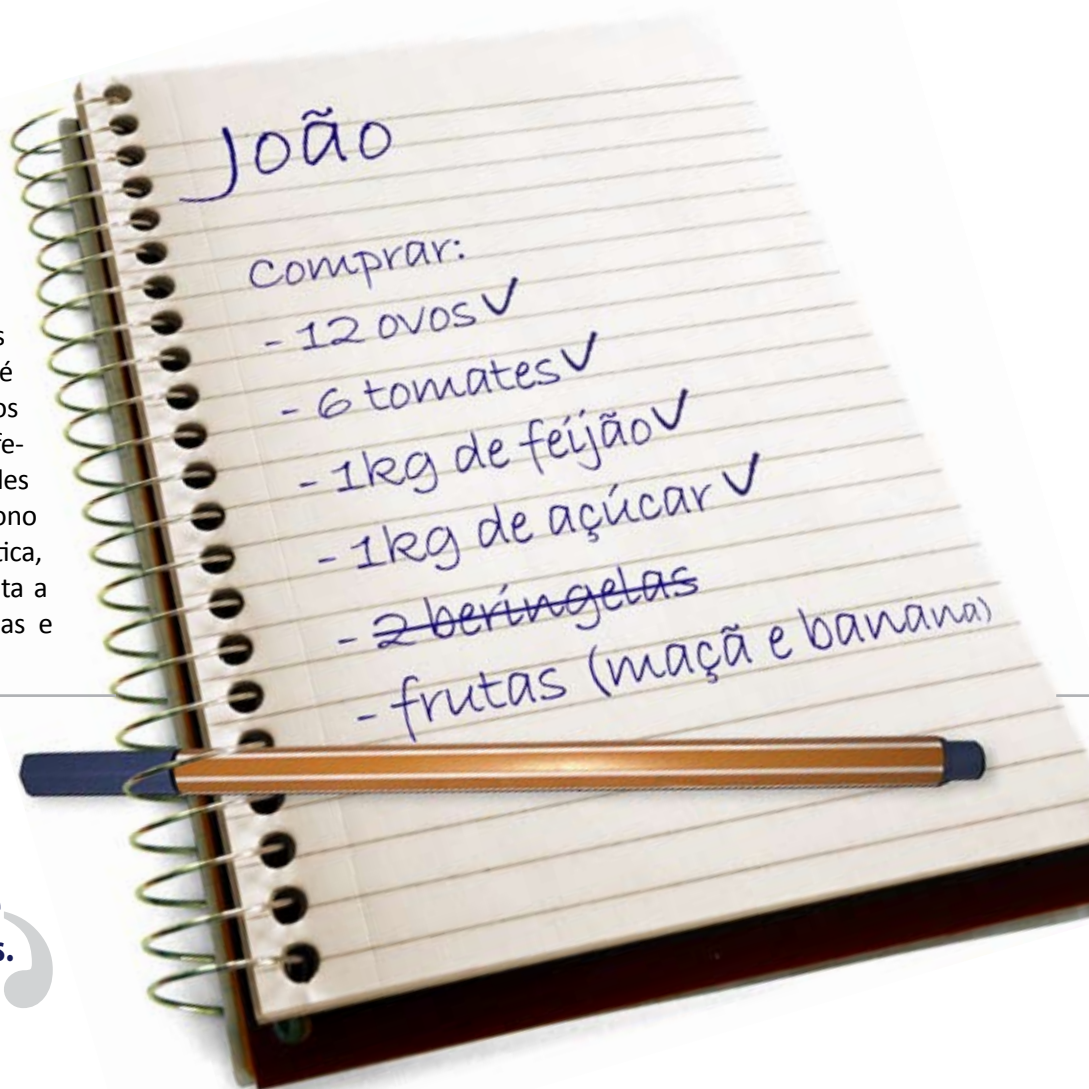 João
Comprar:
- 12 ovos✓
- 6 tomates✓
- 1kg de feijão✓
- 1kg de açúcar✓
- 2 beringelas
- frutas (maçã e banana)
s
é
os
fe-
des
ono
tica,
ta a
as e
s.